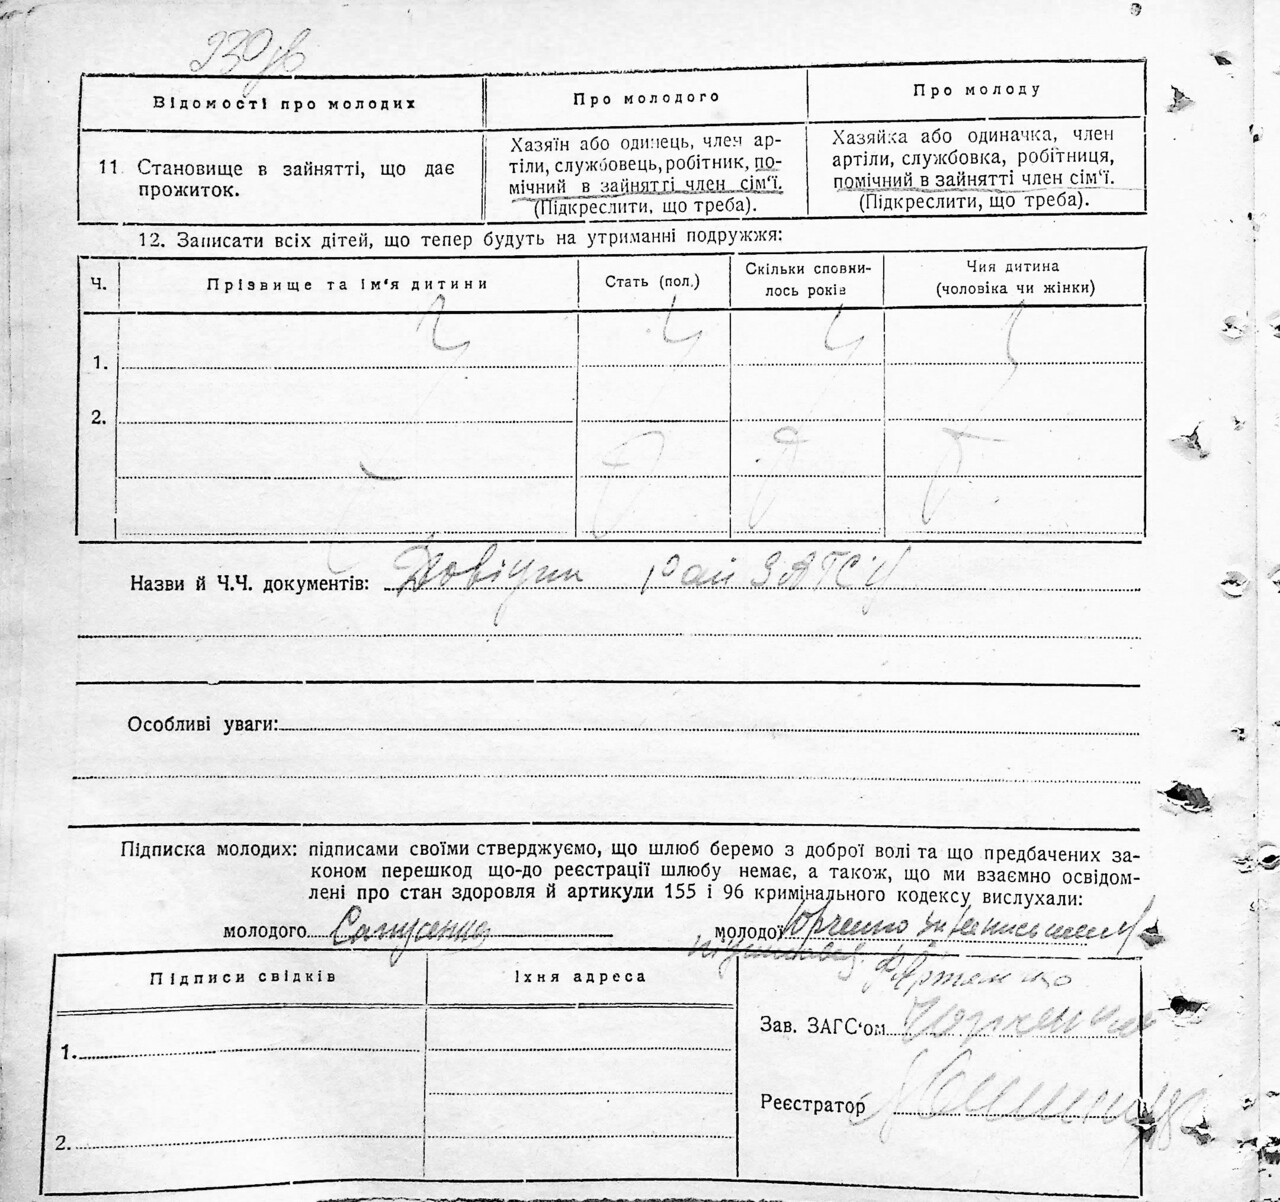 Відомості про молодих
Про молодого
Про молоду
11. Становище в зайнятті, що дає
прожиток.
Хазяїн або одинець, член ар-
тіли, службовець, робітник, по-
мічний в зайнятті член сім‘ї.
(Підкреслити, що треба).
Хазяйка або одиначка, член
артіли, службовка, робітниця,
помічний в зайнятті член сім‘ї.
(Підкреслити, що треба).
12. Записати всіх дітей, що тепер будуть на утриманні подружжя:
Ч.
Прізвище та ім‘я дитини
Стать (пол.)
Скільки сповни-
лось років
Чия дитина
(чоловіка чи жінки)
1.
2.
Назви й Ч.Ч. документів: Довідки рай ЗАГСу
Особливі уваги:
Підписка молодих: підписами своїми стверджуємо, що шлюб беремо з доброї волі та що предбачених за-
коном перешкод що-до реєстрації шлюбу немає, а також, що ми взаємно освідом-
лені про стан здоровля й артикули 155 і 96 кримінального кодексу вислухали:
молодого
молодої
Підписи свідків
Їхня адреса
1.
2.
Зав. ЗАГС‘ом
Реєстратор